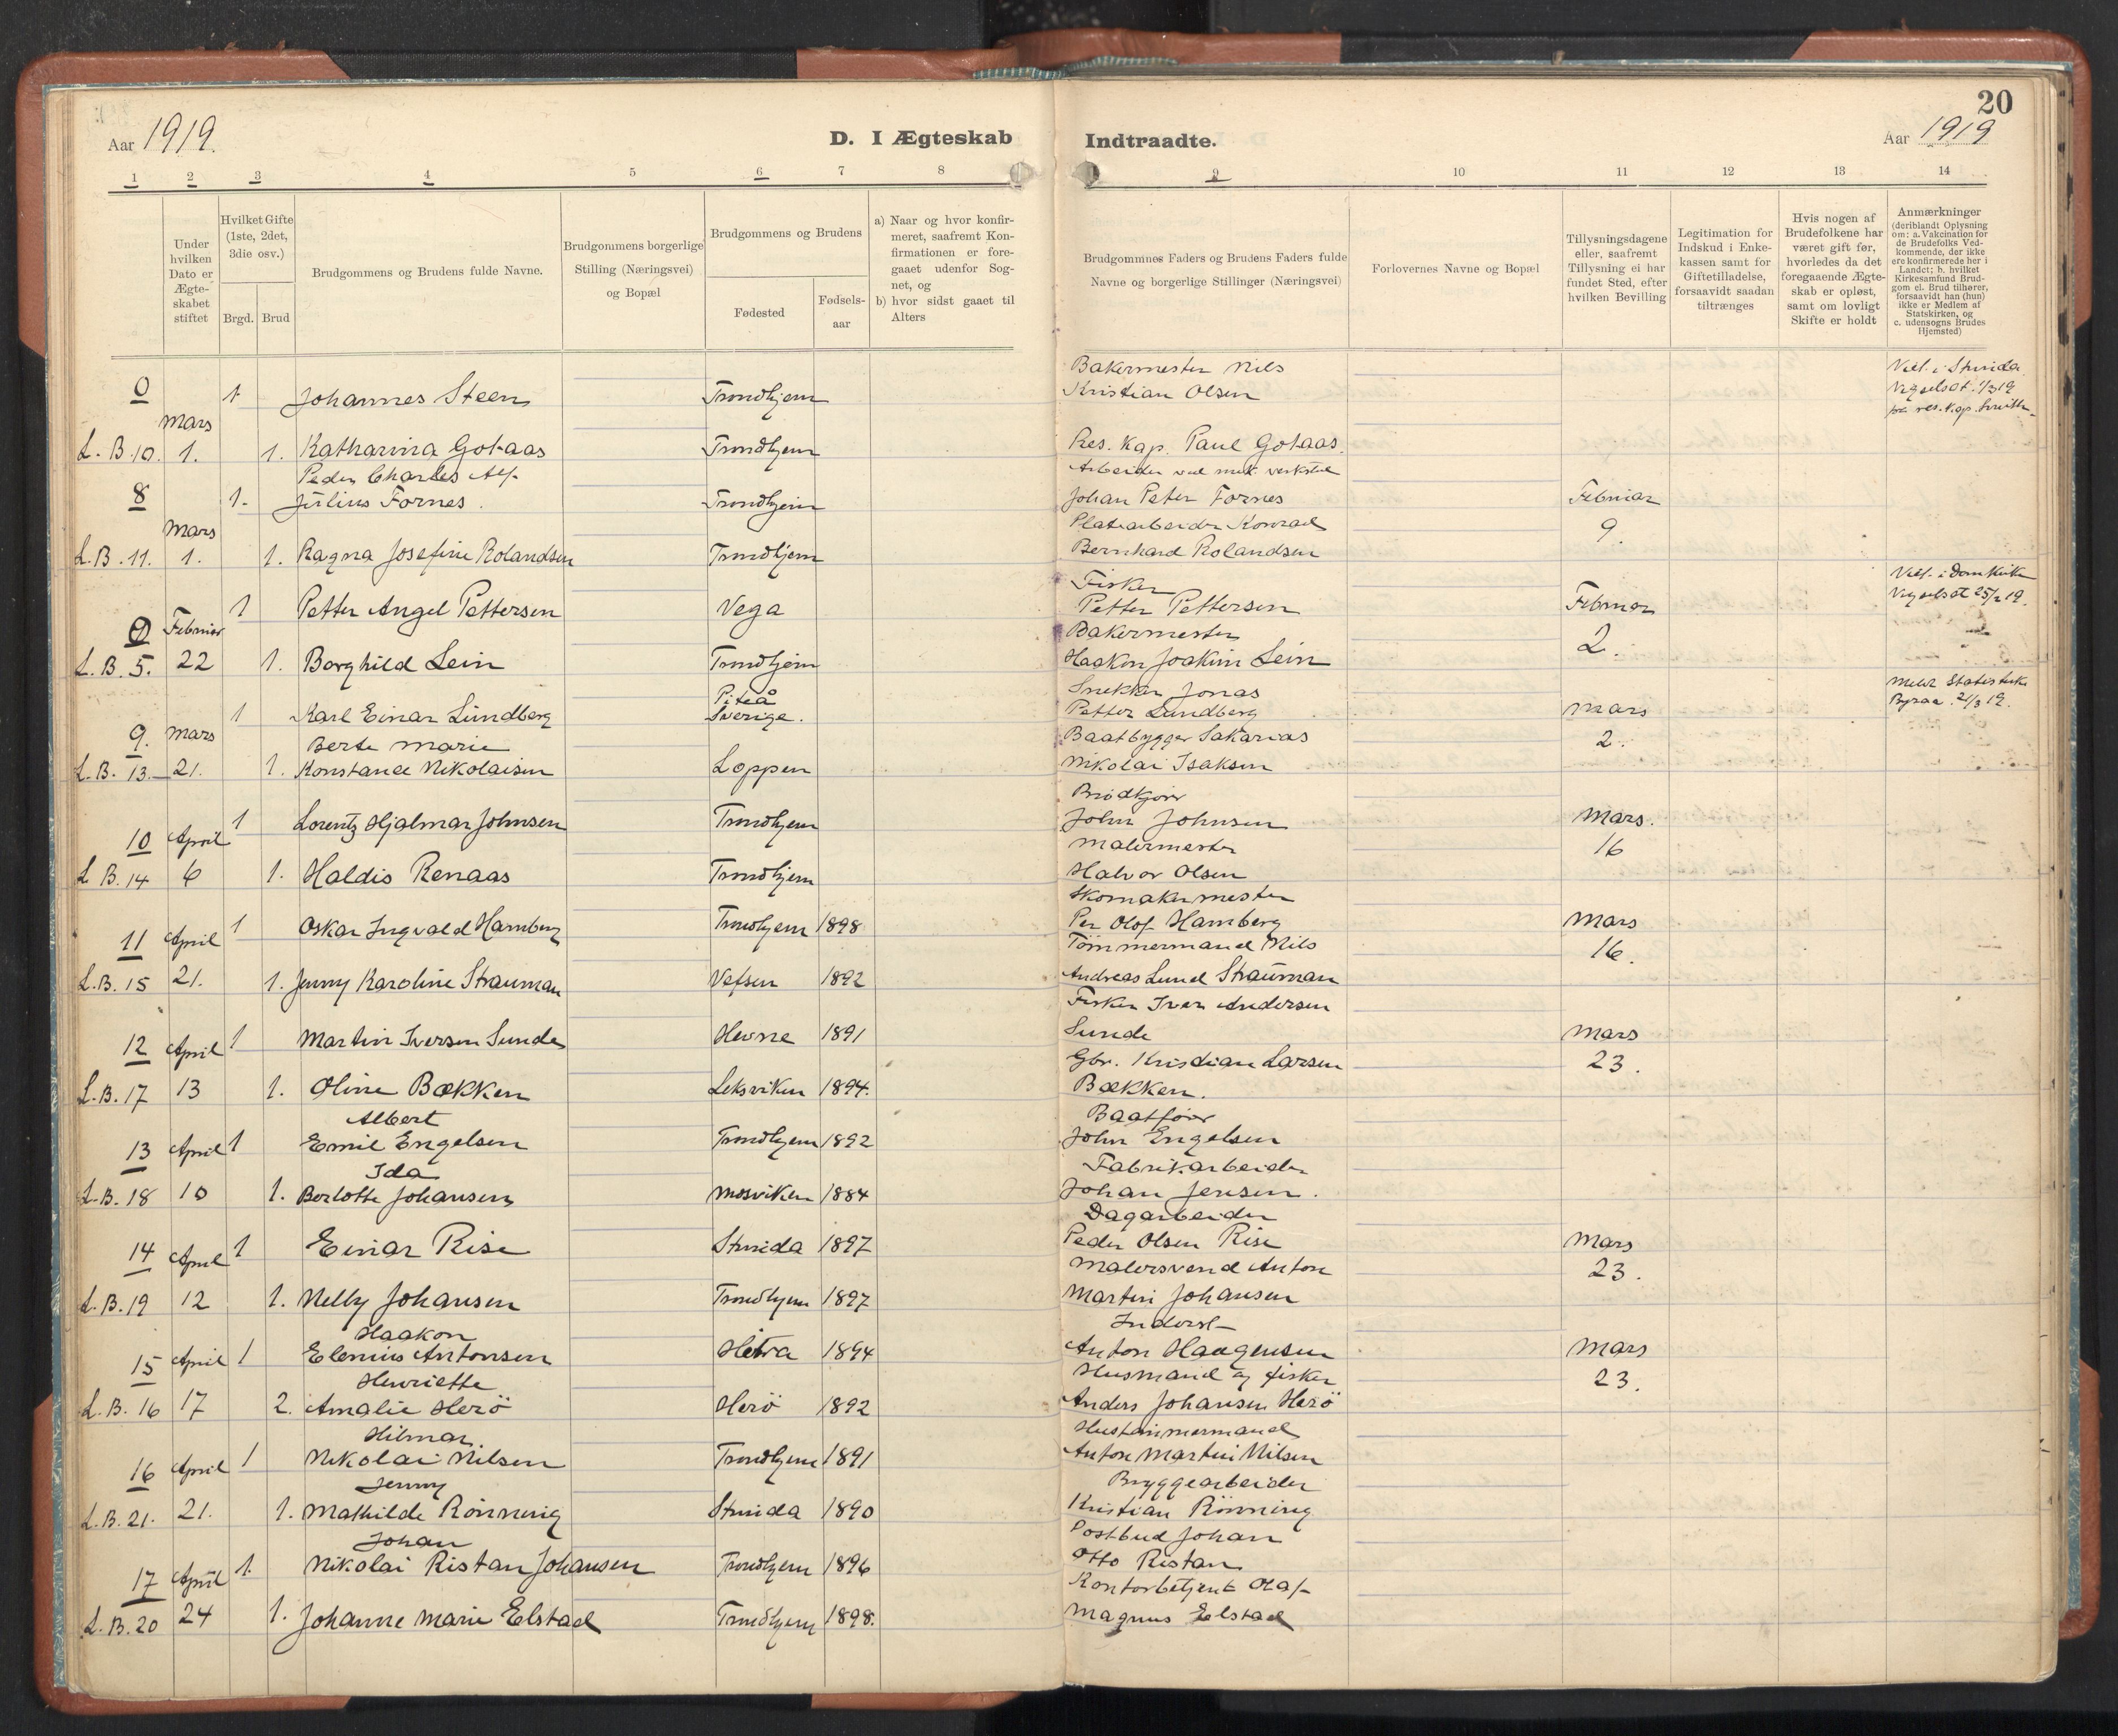 20
Aar 1919.
D. I Ægteskab
Indtraadte.
Aar 1919
1 2 3 4 5 6 7 8 9 10 11 12 13 14
Under hvilken Dato er Ægte-skabet stiftet
Hvilket Gifte (1ste, 2det, 3die osv.)
Brgd. Brud
Brudgommens og Brudens fulde Navne.
Brudgommens borgerlige Stilling (Næringsvei) og Bopæl
Brudgommens og Brudens
Fødested
Fødsels-aar
a) Naar og hvor konfir-meret, saafremt Kon-firmationen er fore-gaaet udenfor Sog-net, og
b) hvor sidst gaaet til Alters
Brudgommnes Faders og Brudens Faders fulde Navne og borgerlige Stillinger (Næringsvei)
Forlovernes Navne og Bopæl
Tillysningsdagene eller, saafremt Tillysning ei har fundet Sted, efter hvilken Bevilling
Legitimation for Indskud i Enke-kassen samt for Giftetilladelse, forsaavidt saadan tiltrænges
Hvis nogen af Brudefolkene har været gift før, hvorledes da det foregaaende Ægte-skab er opløst, samt om lovligt Skifte er holdt
Anmærkninger (deriblandt Oplysning om: a. Vakcination for de Brudefolks Ved-kommende, der ikke ere konfirmerede her i Landet; b. hvilket Kirkesamfund Brud-gom el. Brud tilhører, forsaavidt han (hun) ikke er Medlem af Statskirken, og c. udensogns Brudes Hjemsted)
Bakermester Nils
0 1 Johannes Steen Trondhjem Kristian Olsen
Viel. i Strinda
Vigselsat. 1/3 19
res. kap.
Mars
L. B. 10. 1. 1. Katharina Gotaas Trondhjem Res. kap. Paul Gotaas.
Peder Charles Alf- Arbeider ved mek. verksted
8 1. Julius Fornes. Trondhjem Johan Peter Fornes Februar
Mars Platearbeider Konrad 9.
L. B. 11. 1. 1. Ragna Josefine Rolandsen Trondhjem Bernhard Rolandsen
Fisker
1 Petter Angel Pettersen Vega Petter Pettersen Februar
Viel. i Domkirken
Vigselsat 25/2 19.
Februar Bakermester 2.
L. B. 5. 22 1. Borghild Lein Trondhjem Haakon Joakim Lein
Piteå Snekker Jonas
1 Karl Einar Lundberg Sverige. Petter Lundberg Mars
Meldt Statistiske
Byraa. 21/3 19.
9. Mars Berte Marie Baatbygger Sakarias 2.
L. B. 13. 21. 1. Konstance Nikolaisen Loppen Nikolai Isaksen
Brødkjører
1 Lorentz Hjalmar Johnsen Trondhjem John Johnsen Mars.
10 April Malermester 16
L. B. 14 6 1. Haldis Renaas Trondhjem Halvor Olsen
Skomakermester
1 Oskar Ingvald Hamberg Trondhjem 1898 Per Olof Hamberg Mars
11 April Tømmermand Nils 16.
L. B. 15 21. 1. Jenny Karoline Strauman Vefsen 1892 Andreas Lund Strauman
Fisker Iver Andersen
12 April 1 Martin Iversen Sunde Hevne 1891 Sunde Mars
Gbr. Kristian Larsen 23.
L. B. 17 13 1. Oline Bækken Leksviken 1894. Bækken.
Albert Baatfører
13 April 1 Emil Engelsen Trondhjem 1892 John Engelsen
Ida Fabrikarbeider
L. B. 18 10 1. Berlotte Johansen Mosviken 1884 Johan Jensen.
Dagarbeider
14 April 1 Einar Rise Strinda 1897 Peder Olsen Rise Mars
Malersvend Anton 23.
L. B. 19 12 1. Nelly Johansen Trondhjem 1897 Martin Johansen
Haakon Inderst
15 April 1 Elenius Antonsen Hitra 1894 Anton Haagensen Mars
Henriette Husmand og fisker 23.
L. B. 16 17 2. Amalie Herö Herö 1892 Anders Johansen Herö
Hilmar Hustømmermand
16 April 1 Nikolai Nilsen Trondhjem 1891 Anton Martin Nilsen
Jenny Bryggearbeider
L. B. 21. 21. 1. Mathilde Rönning Strinda 1890 Kristian Rönning
Johan Postbud Johan
17 April 1. Nikolai Ristan Johansen Trondhjem 1896 Otto Ristan
Kontorbetjent Olaf
L. B. 20 24 1. Johanne Marie Elstad Trondhjem 1898. Magnus Elstad